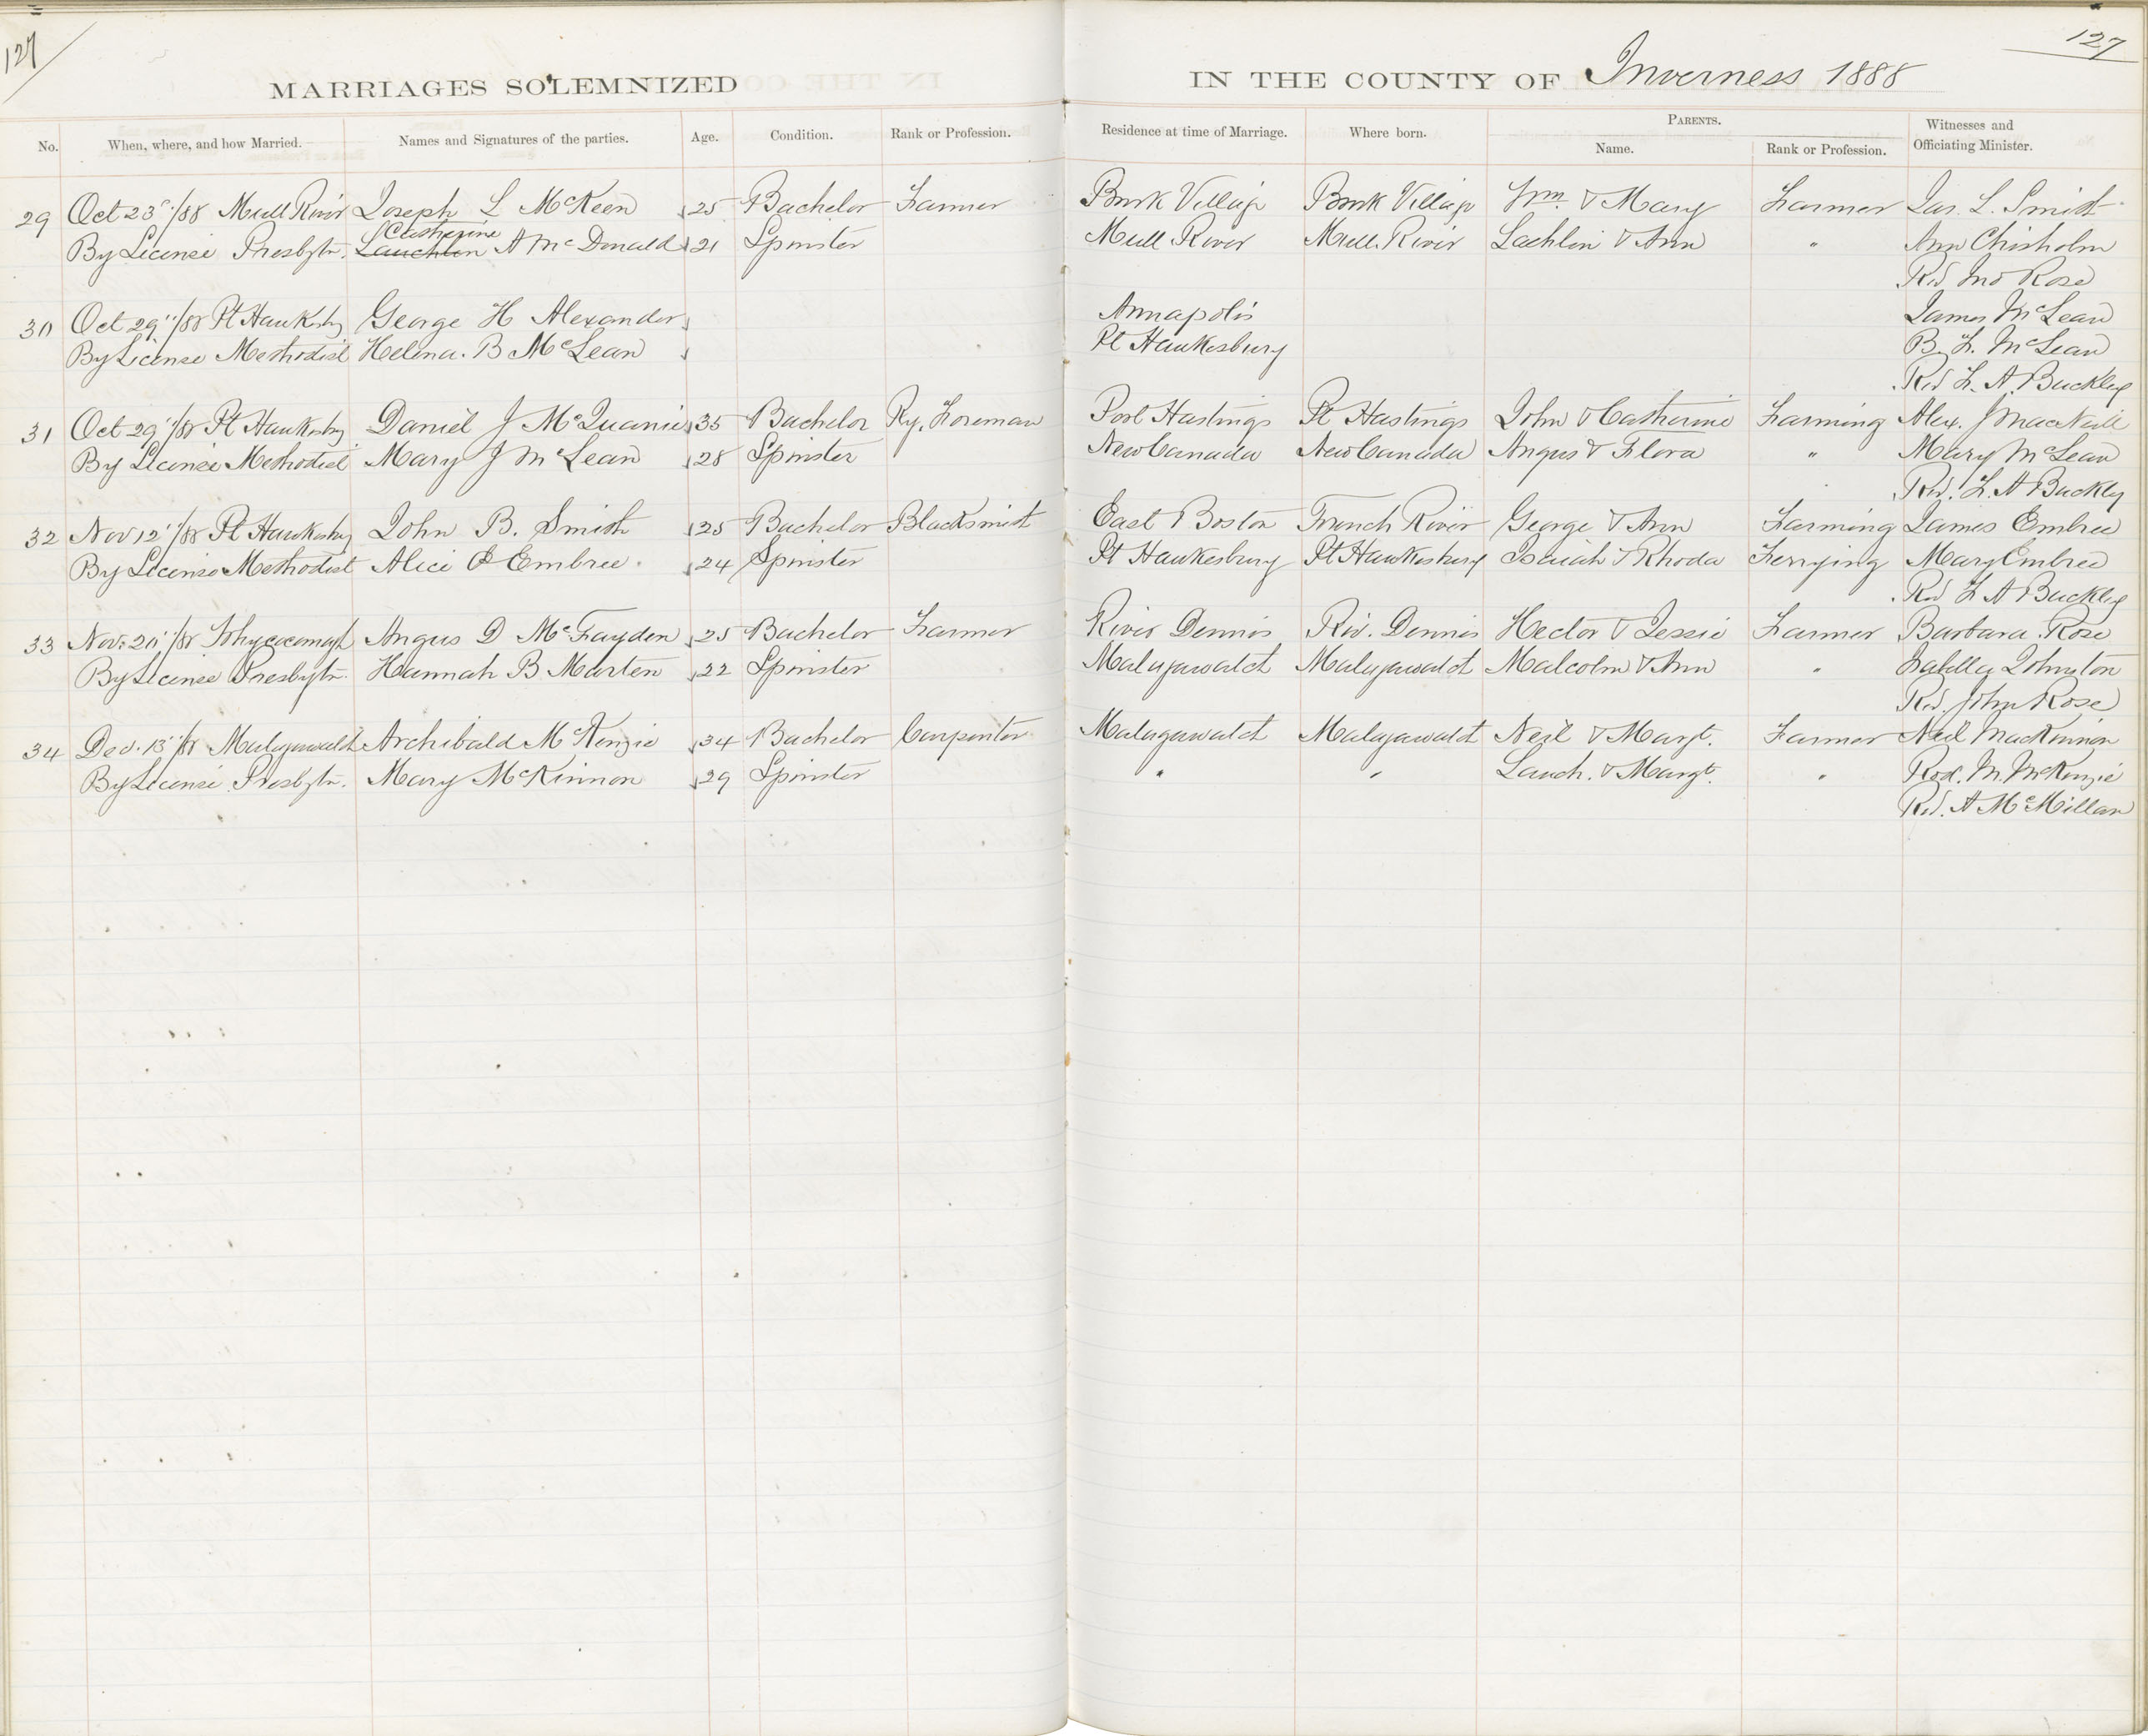 127
127
MARRIAGES SOLEMNIZED IN THE COUNTY OF Inverness 1888
No. When, where, and how Married. Names and Signatures of the parties. Age. Condition. Rank or Profession. Residence at time of Marriage. Where born. PARENTS. Name. Rank or Profession. Witnesses and Officiating Minister.
29 Oct 23"/88 Mull River Joseph L McKeen 25 Bachelor Farmer Brook Village Brook Village Wm. & Mary Farmer Jas. L. Smith
Catherine
By License Presbytn. Lauchlen A McDonald 21 Spinster Mull River Mull River Lachlin & Ann " Ann Chisholm
Rev Jno Rose
30 Oct 29"/88 Pt Hawksby George H Alexander Annapolis James McLean
By License Methodist Helena. B McLean Pt Hawkesbury B. L. McLean
Rev L. A Buckley
31 Oct 29"/88 Pt Hawksby Daniel J McQuanie 35 Bachelor Ry. Foreman Port Hastings Pt Hastings John & Catherine Farming Alex. J MacNeill
By License Methodist Mary J McLean 28 Spinster New Canada New Canada Angus & Flora " Mary McLean
Rev. L. A Buckley
32 Nov 12"/88 Pt Hawksby John B. Smith 25 Bachelor Blacksmith East Boston French River George & Ann Farming James Embree
By License Methodist Alice Embree 24 Spinster Pt Hawkesbury Pt Hawkesbury Isaiah & Rhoda Ferrying Mary Embree
Rev L A Buckley
33 Nov. 20"/88 Angus D McFayden 25 Bachelor Farmer River Dennis Riv. Dennis Hector & Jessie Farmer Barbara Rose
By License Presbytn. Hannah B Marten 22 Spinster Malagawatch Malagawatch Malcolm & Ann " Isabella Johnston
Rev. John Rose
34 Dec. 13"/88 Malagawatch Archibald McKenzie 34 Bachelor Carpenter Malagawatch Malagawatch Neil & Margt. Farmer Neil MacKinnon
By License Presbytn. Mary McKinnon 29 Spinster " " Lauch. & Margt. " Rod. M. McKenzie
Rev. A McMillan